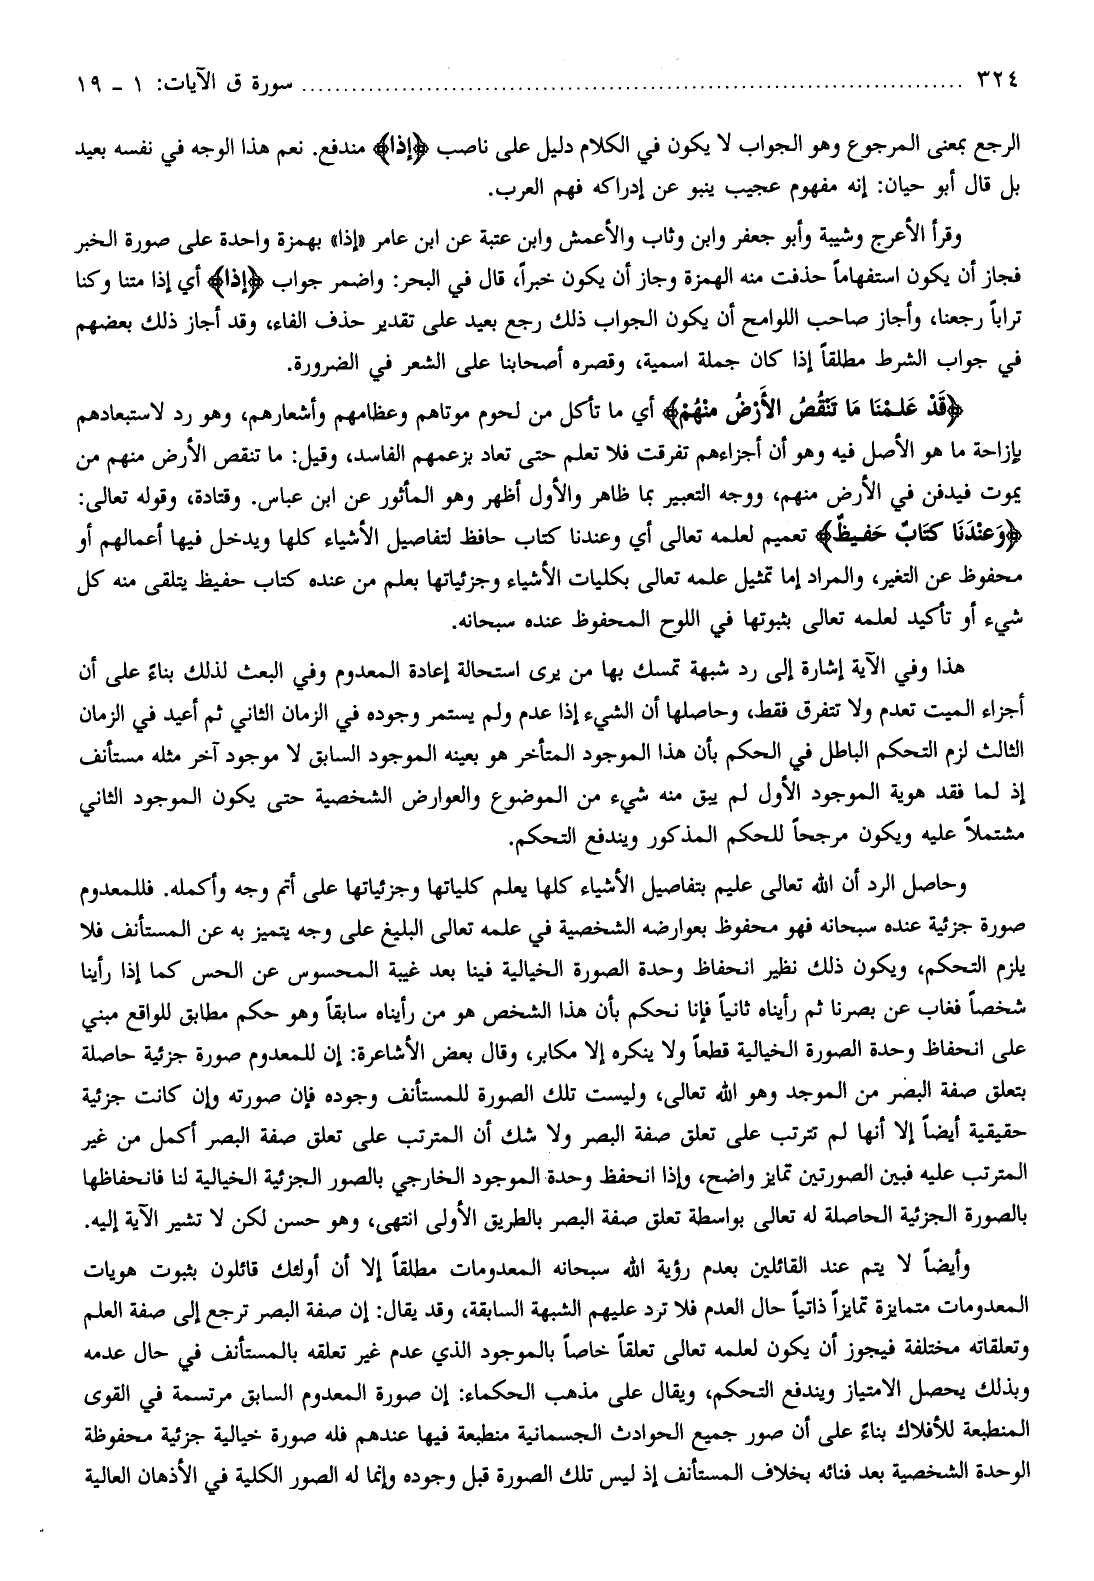 ٣٢٤ ........................................ سورة ق الآيات: ١ ـ ١٩
الرجع بمعنى المرجوع وهو الجواب لا يكون في الكلام دليل على ناصب ﴿إذا﴾ مندفع. نعم هذا الوجه في نفسه بعيد
بل قال أبو حيان: إنه مفهوم عجيب ينبو عن إدراكه فهم العرب.
وقرأ الأعرج وشيبة وأبو جعفر وابن وثاب والأعمش وابن عتبة عن ابن عامر «إذا» بهمزة واحدة على صورة الخبر
فجاز أن يكون استفهاماً حذفت منه الهمزة وجاز أن يكون خبراً، قال في البحر: واضمر جواب ﴿إذا﴾ أي إذا متنا وكنا
تراباً رجعنا، وأجاز صاحب اللوامح أن يكون الجواب ذلك رجع بعيد على تقدير حذف الفاء، وقد أجاز ذلك بعضهم
في جواب الشرط مطلقاً إذا كان جملة اسمية، وقصره أصحابنا على الشعر في الضرورة.
﴿قَدْ عَلِمْنَا مَا تَنْقُصُ الأَرْضُ مِنْهُمْ﴾ أي ما تأكل من لحوم موتاهم وعظامهم وأشعارهم، وهو رد لاستبعادهم
بإزاحة ما هو الأصل فيه وهو أن أجزاءهم تفرقت فلا تعلم حتى تعاد بزعمهم الفاسد، وقيل: ما تنقص الأرض منهم من
يموت فيدفن في الأرض منهم، ووجه التعبير بما ظاهر والأول أظهر وهو المأثور عن ابن عباس. وقتادة، وقوله تعالى:
﴿وَعِنْدَنَا كِتَابٌ حَفِيظٌ﴾ تعميم لعلمه تعالى أي وعندنا كتاب حافظ لتفاصيل الأشياء كلها ويدخل فيها أعمالهم أو
محفوظ عن التغير، والمراد إما تمثيل علمه تعالى بكليات الأشياء وجزئياتها بعلم من عنده كتاب حفيظ يتلقى منه كل
شيء أو تأكيد لعلمه تعالى بثبوتها في اللوح المحفوظ عنده سبحانه.
هذا وفي الآية إشارة إلى رد شبهة تمسك بها من يرى استحالة إعادة المعدوم وفي البعث لذلك بناءً على أن
أجزاء الميت تعدم ولا تتفرق فقط، وحاصلها أن الشيء إذا عدم ولم يستمر وجوده في الزمان الثاني ثم أعيد في الزمان
الثالث لزم التحكم الباطل في الحكم بأن هذا الموجود المتأخر هو بعينه الموجود السابق لا موجود آخر مثله مستأنف
إذ لما فقد هوية الموجود الأول لم يبق منه شيء من الموضوع والعوارض الشخصية حتى يكون الموجود الثاني
مشتملاً عليه ويكون مرجحاً للحكم المذكور ويندفع التحكم.
وحاصل الرد أن الله تعالى عليم بتفاصيل الأشياء كلها يعلم كلياتها وجزئياتها على أتم وجه وأكمله. فللمعدوم
صورة جزئية عنده سبحانه فهو محفوظ بعوارضه الشخصية في علمه تعالى البليغ على وجه يتميز به عن المستأنف فلا
يلزم التحكم، ويكون ذلك نظير انحفاظ وحدة الصورة الخيالية فينا بعد غيبة المحسوس عن الحس كما إذا رأينا
شخصاً فغاب عن بصرنا ثم رأيناه ثانياً فإنا نحكم بأن هذا الشخص هو من رأيناه سابقاً وهو حكم مطابق للواقع مبني
على انحفاظ وحدة الصورة الخيالية قطعاً ولا ينكره إلا مكابر، وقال بعض الأشاعرة: إن للمعدوم صورة جزئية حاصلة
بتعلق صفة البصر من الموجد وهو الله تعالى، وليست تلك الصورة للمستأنف وجوده فإن صورته وإن كانت جزئية
حقيقية أيضاً إلا أنها لم تترتب على تعلق صفة البصر ولا شك أن المترتب على تعلق صفة البصر أكمل من غير
المترتب عليه فبين الصورتين تمايز واضح، وإذا انحفظ وحدة الموجود الخارجي بالصور الجزئية الخيالية لنا فانحفاظها
بالصورة الجزئية الحاصلة له تعالى بواسطة تعلق صفة البصر بالطريق الأولى انتهى، وهو حسن لكن لا تشير الآية إليه.
وأيضاً لا يتم عند القائلين بعدم رؤية الله سبحانه المعدومات مطلقاً إلا أن أولئك قائلون بثبوت هويات
المعدومات متمايزة تمايزاً ذاتياً حال العدم فلا ترد عليهم الشبهة السابقة، وقد يقال: إن صفة البصر ترجع إلى صفة العلم
وتعلقاته مختلفة فيجوز أن يكون لعلمه تعالى تعلقاً خاصاً بالموجود الذي عدم غير تعلقه بالمستأنف في حال عدمه
وبذلك يحصل الامتياز ويندفع التحكم، ويقال على مذهب الحكماء: إن صورة المعدوم السابق مرتسمة في القوى
المنطبعة للأفلاك بناءً على أن صور جميع الحوادث الجسمانية منطبعة فيها عندهم فله صورة خيالية جزئية محفوظة
الوحدة الشخصية بعد فنائه بخلاف المستأنف إذ ليس تلك الصورة قبل وجوده وإنما له الصور الكلية في الأذهان العالية